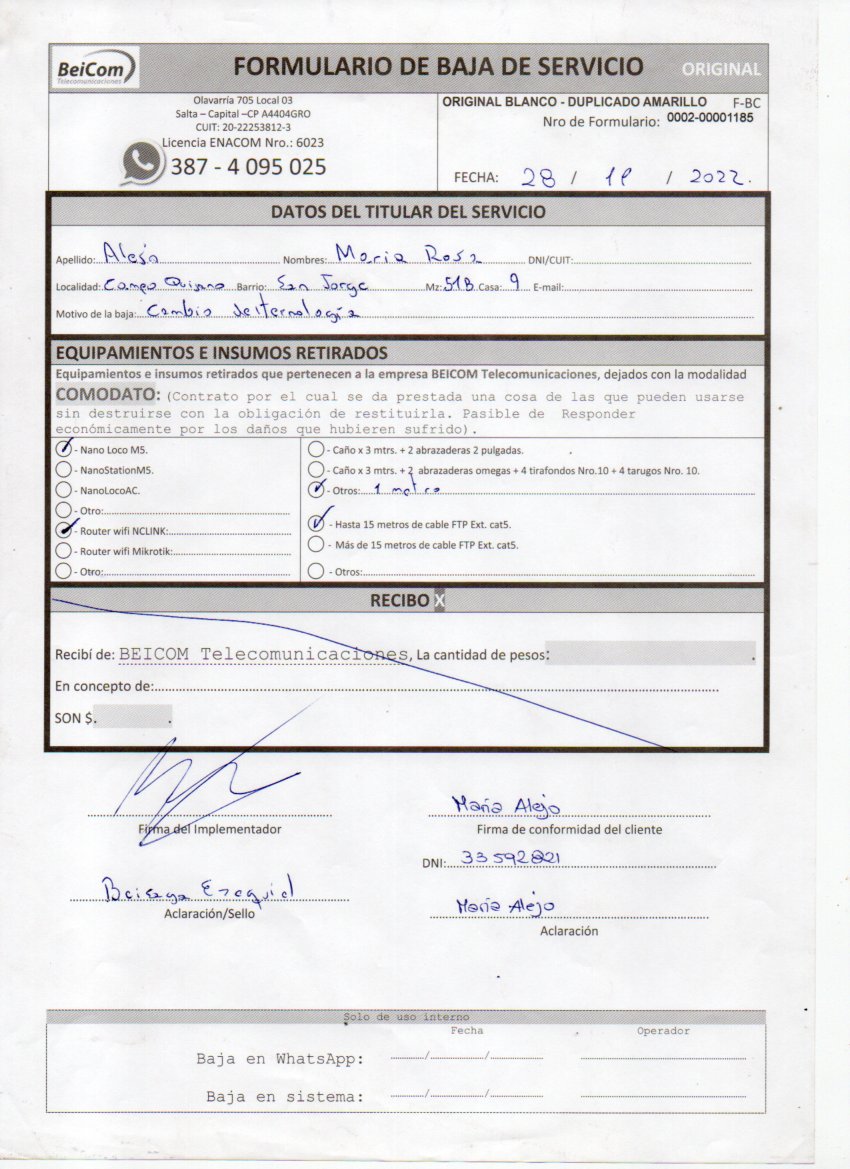 BeiCom
Telecomunicaciones
FORMULARIO DE BAJA DE SERVICIO ORIGINAL
Olavarría 705 Local 03
Salta – Capital –CP A4404GRO
CUIT: 20-22253812-3
Licencia ENACOM Nro.: 6023
387 - 4 095 025
ORIGINAL BLANCO - DUPLICADO AMARILLO F-BC
Nro de Formulario: 0002-00001185
FECHA: 28 / 11 / 2022.
DATOS DEL TITULAR DEL SERVICIO
Apellido: Alejo Nombres: Maria Rosa DNI/CUIT:
Localidad: Campo Quijano Barrio: San Jorge Mz: 51B Casa: 9 E-mail:
Motivo de la baja: Cambio de
EQUIPAMIENTOS E INSUMOS RETIRADOS
Equipamientos e insumos retirados que pertenecen a la empresa BEICOM Telecomunicaciones, dejados con la modalidad
COMODATO: (Contrato por el cual se da prestada una cosa de las que pueden usarse
sin destruirse con la obligación de restituirla. Pasible de Responder
económicamente por los daños que hubieren sufrido).
- Nano Loco M5.
- NanoStationM5.
- NanoLocoAC.
- Otro:
- Router wifi NCLINK:
- Router wifi Mikrotik:
- Otro:
- Caño x 3 mtrs. + 2 abrazaderas 2 pulgadas.
- Caño x 3 mtrs. + 2 abrazaderas omegas + 4 tirafondos Nro.10 + 4 tarugos Nro. 10.
- Otros: 1 metro
- Hasta 15 metros de cable FTP Ext. cat5.
- Más de 15 metros de cable FTP Ext. cat5.
- Otros:
RECIBO X
Recibí de: BEICOM Telecomunicaciones, La cantidad de pesos: .
En concepto de:
SON $. .
Firma del Implementador
María Alejo
Firma de conformidad del cliente
DNI: 33592821
Ezequiel
Aclaración/Sello
María Alejo
Aclaración
Solo de uso interno
Fecha Operador
Baja en WhatsApp: / /
Baja en sistema: / /